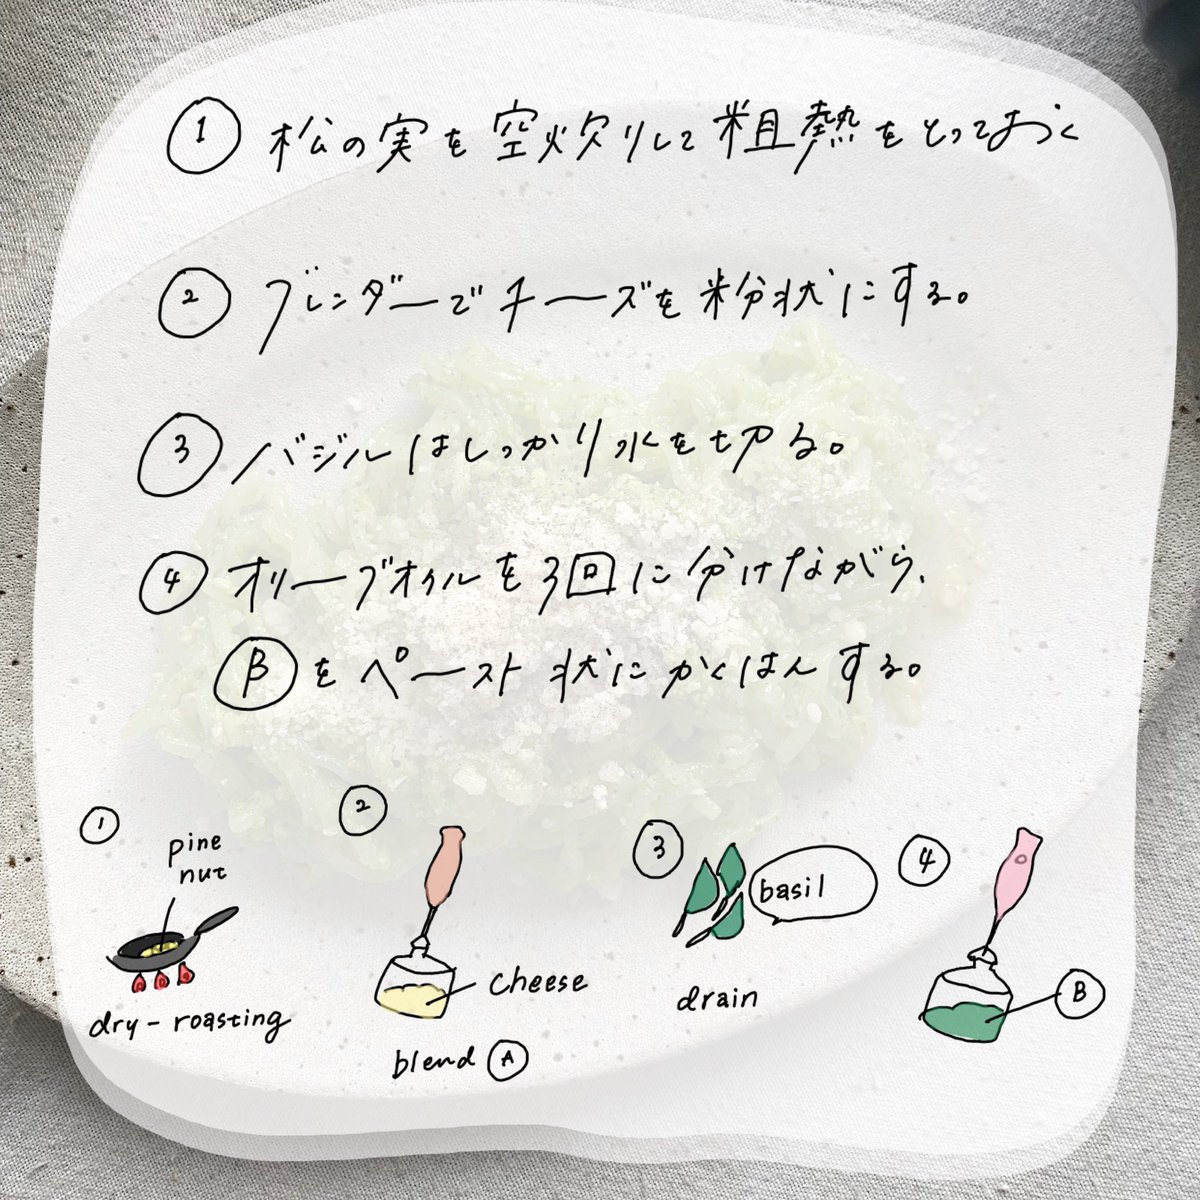 ① 松の実を空炒りして粗熱をとっておく
② ブレンダーでチーズを粉状にする。
③ バジルはしっかり水を切る。
④ オリーブオイルを3回に分けながら、
Ⓑをペースト状にかくはんする。
①
pine
nut
dry-roasting
②
cheese
blend Ⓐ
③
basil
drain
④
Ⓑ